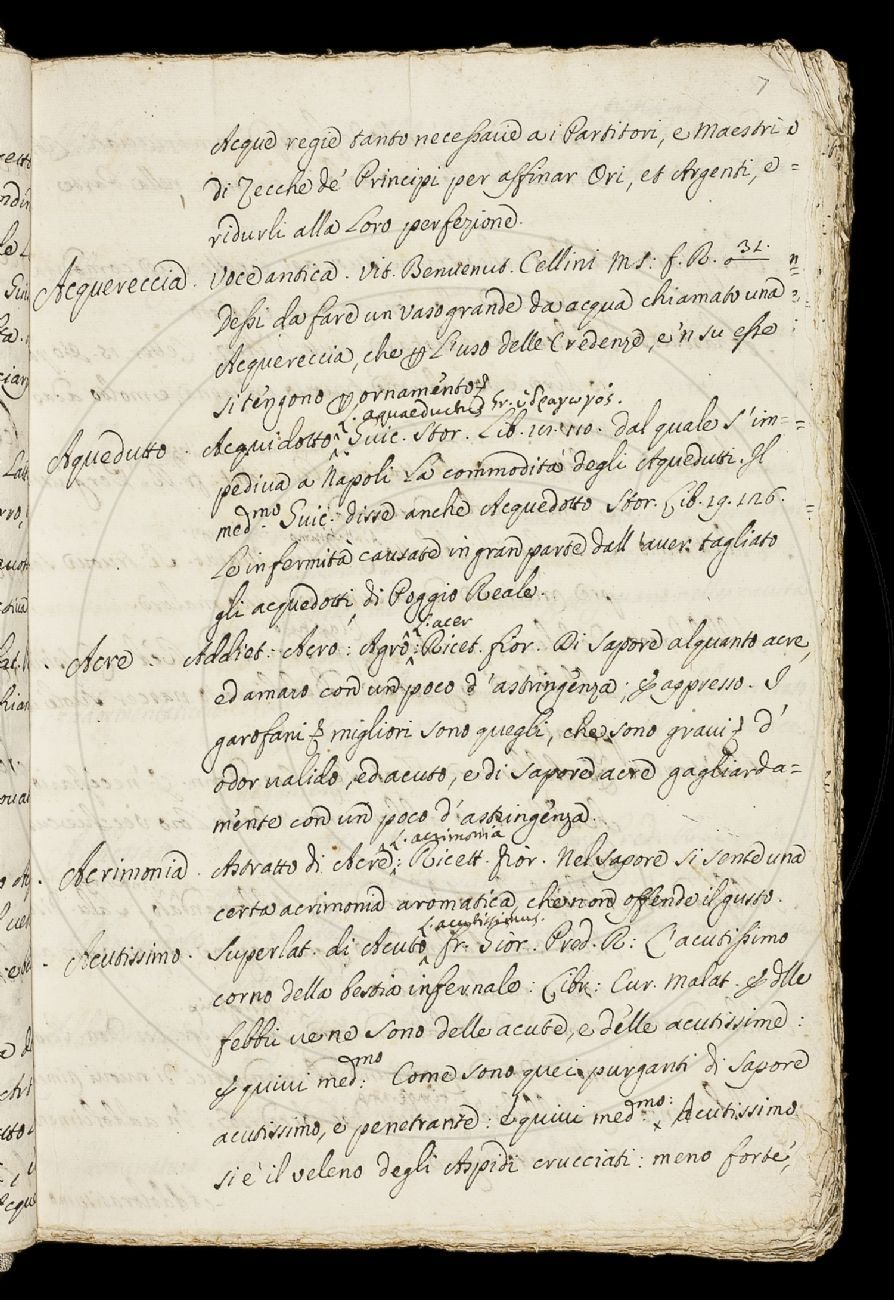 7
Acque regie tanto necessarie a i Partitori, e Maestri
di Zecche de' Principi per affinar Ori, et Argenti, e
ridurli alla Loro perfezione.
Acquereccia. Voce antica. Vit. Benvenut. Cellini MS: f. R. 31.
Dessi da fare un vaso grande da acqua chiamato una
Acquereccia, che p L'uso delle Credenze, e'n su esse
si tengono p ornamento
L. aquaeductus Gr. ὑδραγωγός.
Aquedutto. Acquidotto: Guic. Stor. Lib. 121. 110. dal quale s'im=
pediva a Napoli La commodità degli Aquedutti. Il
med.mo Guic. disse anche Acquedotto Stor. Lib. 19. 126.
Le infermità causate in gran parte dall'aver tagliato
gli acquedotti di Poggio Reale.
L. acer
Acre. Addiet. Acro: Agro: Ricet. fior. Di sapore alquanto acre,
ed amaro con un poco d'astringenza; & appresso. I
garofani migliori sono quegli, che sono gravi d'
odor valido, ed acuto, e di sapore acre gagliarda=
mente con un poco d'astringenza.
L. acrimonia
Acrimonia. Astratto di Acre: Ricett. fior. Nel sapore si sente una
certa acrimonia aromatica che non offende il gusto.
L. acutissimus.
Acutissimo. Superlat. di Acuto fr. Gior. Pred. R: L'acutissimo
corno della bestia infernale: Libr. Cur. Malat. & dlle
febbri ve ne sono delle acute, e delle acutissime:
& quivi med.mo: Come sono quei purganti di sapore
acutissimo, e penetrante: e quivi med.mo: Acutissimo
si è il veleno degli Aspidi crucciati: meno forte,